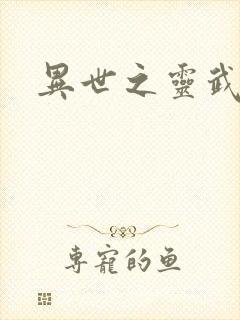 異世之靈武
專寵的鱼